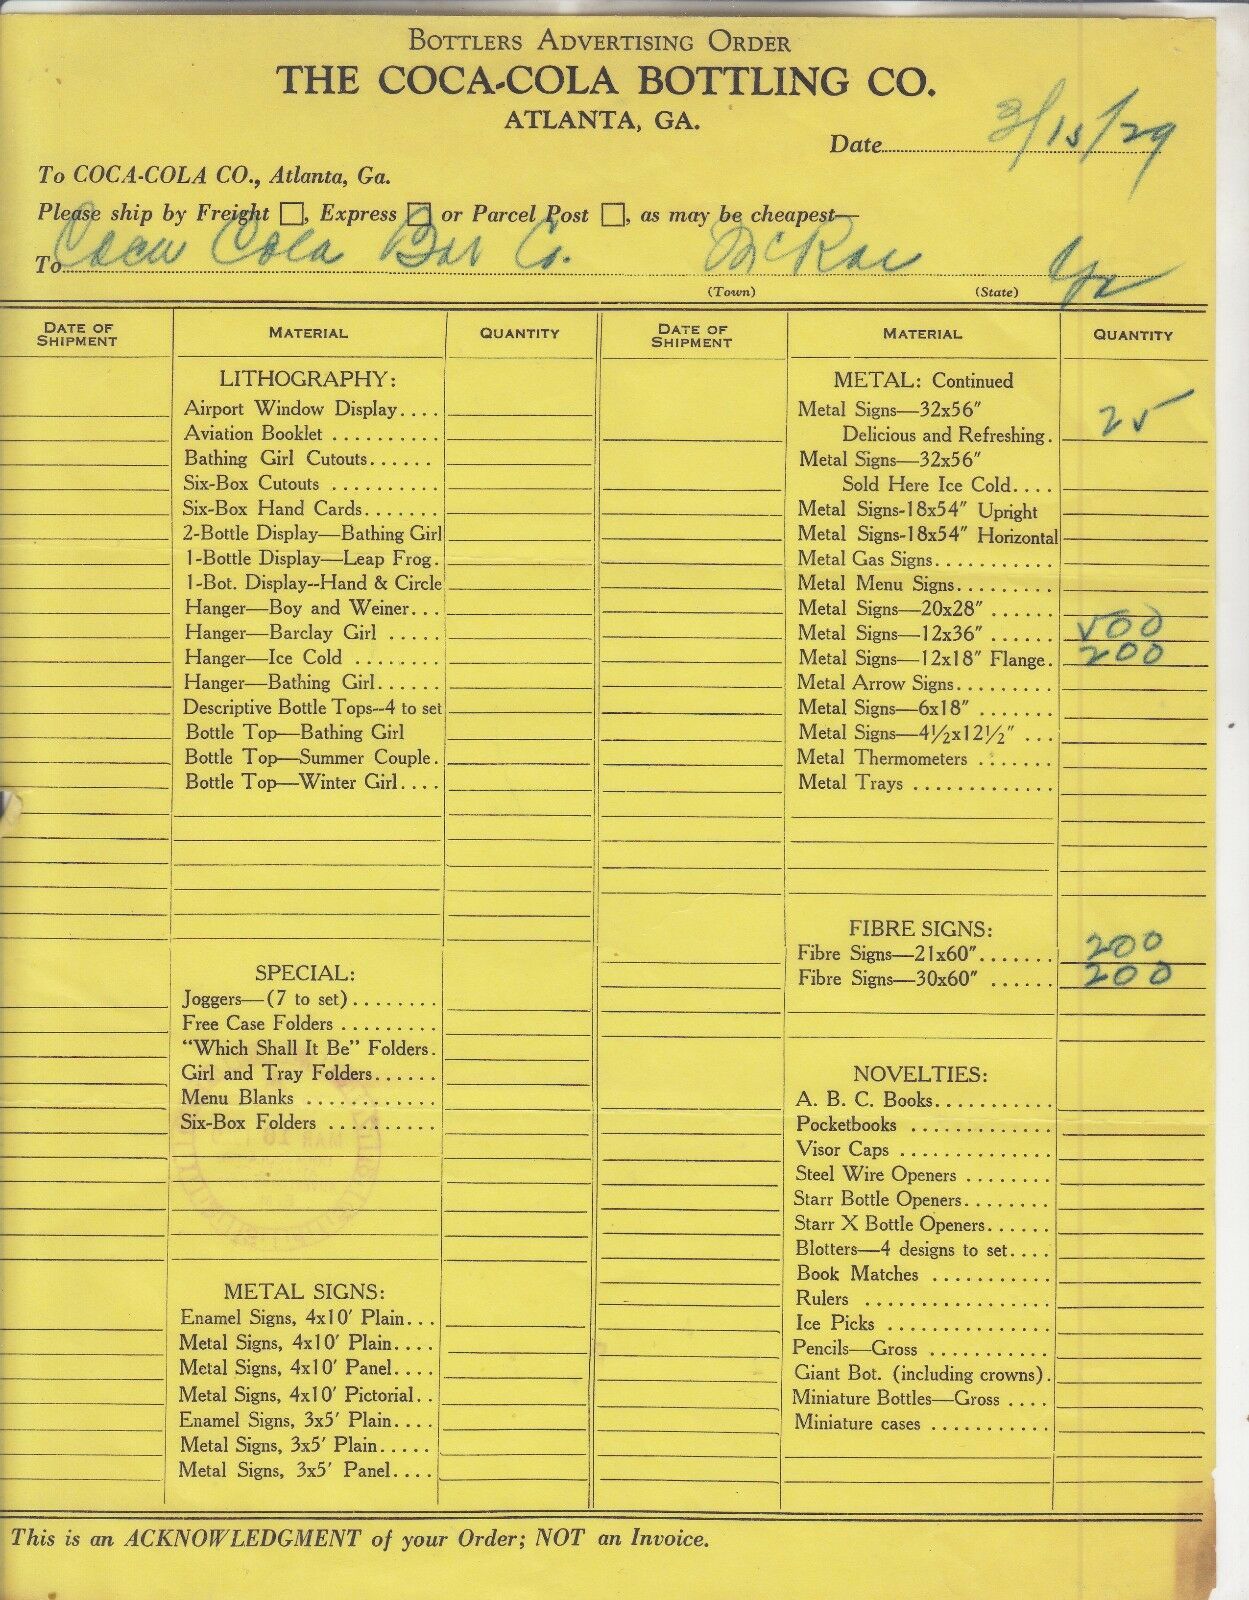 BOTTLERS ADVERTISING ORDER
THE COCA-COLA BOTTLING CO.
ATLANTA, GA.
Date 3/15/29
To COCA-COLA CO., Atlanta, Ga.
Please ship by Freight ☐, Express ☐ or Parcel Post ☐, as may be cheapest—
To Coca Cola Bot Co. McRae Ga
(Town) (State)
DATE OF SHIPMENT MATERIAL QUANTITY
LITHOGRAPHY:
Airport Window Display....
Aviation Booklet ..........
Bathing Girl Cutouts......
Six-Box Cutouts ..........
Six-Box Hand Cards.......
2-Bottle Display—Bathing Girl
1-Bottle Display—Leap Frog.
1-Bot. Display--Hand & Circle
Hanger—Boy and Weiner...
Hanger—Barclay Girl .....
Hanger—Ice Cold ........
Hanger—Bathing Girl......
Descriptive Bottle Tops--4 to set
Bottle Top—Bathing Girl
Bottle Top—Summer Couple.
Bottle Top—Winter Girl....
SPECIAL:
Joggers—(7 to set)........
Free Case Folders .........
"Which Shall It Be" Folders.
Girl and Tray Folders......
Menu Blanks ............
Six-Box Folders ..........
METAL SIGNS:
Enamel Signs, 4x10' Plain...
Metal Signs, 4x10' Plain....
Metal Signs, 4x10' Panel....
Metal Signs, 4x10' Pictorial..
Enamel Signs, 3x5' Plain....
Metal Signs, 3x5' Plain.....
Metal Signs, 3x5' Panel....
DATE OF SHIPMENT MATERIAL QUANTITY
METAL: Continued
Metal Signs—32x56"
Delicious and Refreshing. 25
Metal Signs—32x56"
Sold Here Ice Cold....
Metal Signs-18x54" Upright
Metal Signs-18x54" Horizontal
Metal Gas Signs...........
Metal Menu Signs.........
Metal Signs—20x28" ......
Metal Signs—12x36" ...... 500
Metal Signs—12x18" Flange. 200
Metal Arrow Signs.........
Metal Signs—6x18" .......
Metal Signs—4½x12½" ...
Metal Thermometers .......
Metal Trays .............
FIBRE SIGNS:
Fibre Signs—21x60"....... 200
Fibre Signs—30x60" ...... 200
NOVELTIES:
A. B. C. Books...........
Pocketbooks .............
Visor Caps ..............
Steel Wire Openers ........
Starr Bottle Openers........
Starr X Bottle Openers......
Blotters—4 designs to set....
Book Matches ...........
Rulers .................
Ice Picks ...............
Pencils—Gross ...........
Giant Bot. (including crowns).
Miniature Bottles—Gross ....
Miniature cases ...........
This is an ACKNOWLEDGMENT of your Order; NOT an Invoice.